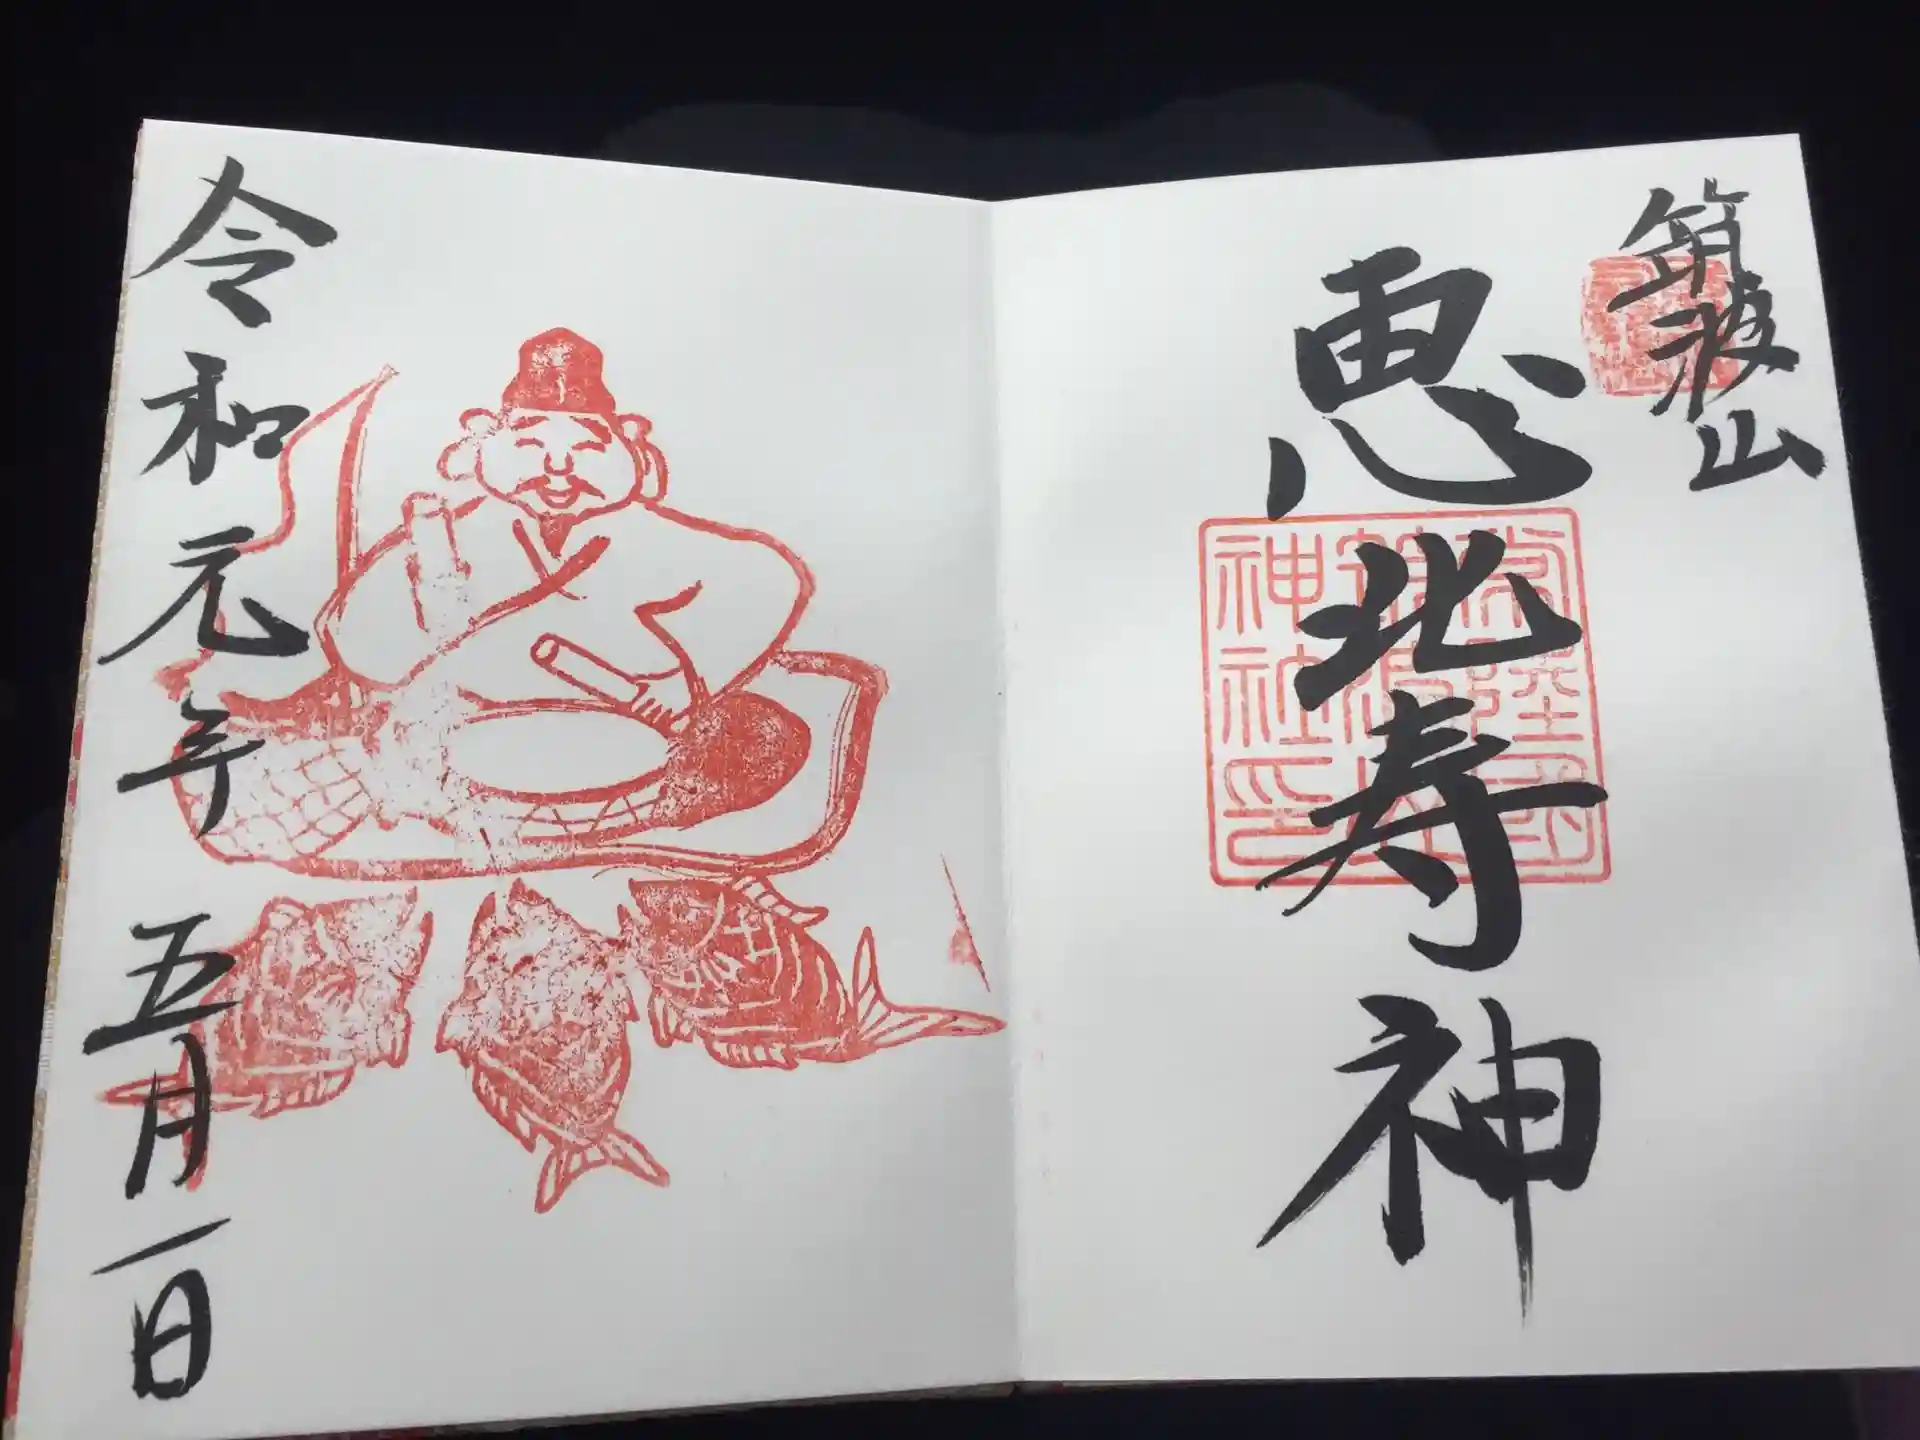 筑波山
恵比寿神
常陸國
筑波山
神社之印
令和元年 五月一日